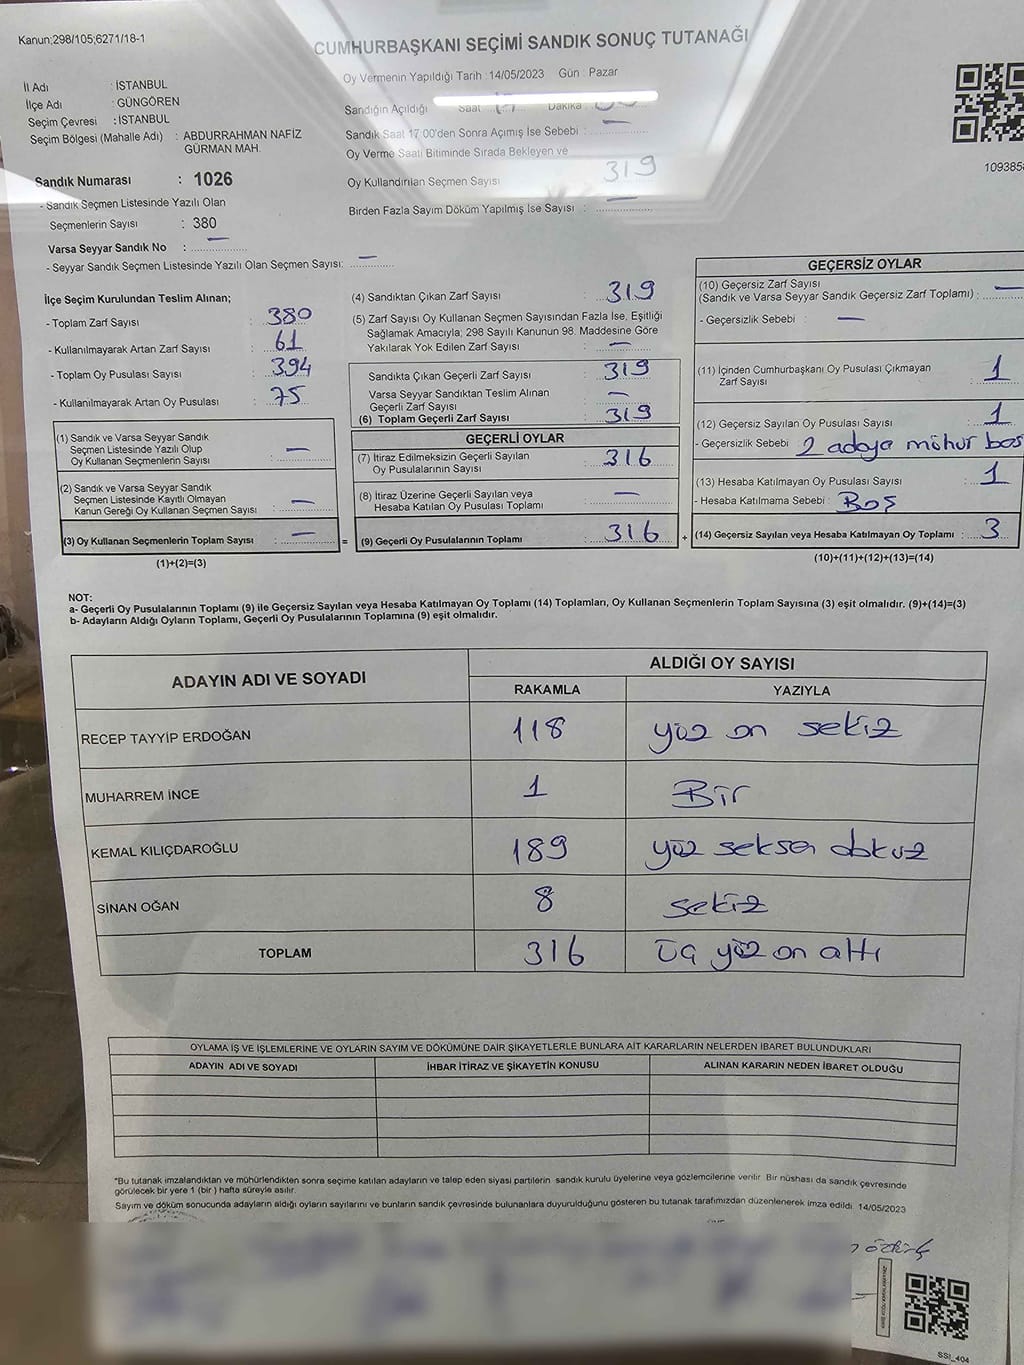 Kanun;298/105;6271/18-1
CUMHURBAŞKANI SEÇİMİ SANDIK SONUÇ TUTANAĞI
İl Adı : İSTANBUL
İlçe Adı : GÜNGÖREN
Seçim Çevresi : İSTANBUL
Seçim Bölgesi (Mahalle Adı) : ABDURRAHMAN NAFİZ
GÜRMAN MAH.
Sandık Numarası : 1026
- Sandık Seçmen Listesinde Yazılı Olan
Seçmenlerin Sayısı : 380
Varsa Seyyar Sandık No : —
- Seyyar Sandık Seçmen Listesinde Yazılı Olan Seçmen Sayısı: —
Oy Vermenin Yapıldığı Tarih : 14/05/2023 Gün : Pazar
Sandığın Açıldığı Saat 17 Dakika
Sandık Saat 17:00'den Sonra Açımış İse Sebebi : —
Oy Verme Saati Bitiminde Sırada Bekleyen ve
Oy Kullandırılan Seçmen Sayısı 319
Birden Fazla Sayım Döküm Yapılmış İse Sayısı : —
109385
İlçe Seçim Kurulundan Teslim Alınan;
- Toplam Zarf Sayısı : 380
- Kullanılmayarak Artan Zarf Sayısı : 61
- Toplam Oy Pusulası Sayısı : 394
- Kullanılmayarak Artan Oy Pusulası : 75
(1) Sandık ve Varsa Seyyar Sandık
Seçmen Listesinde Yazılı Olup
Oy Kullanan Seçmenlerin Sayısı : —
(2) Sandık ve Varsa Seyyar Sandık
Seçmen Listesinde Kayıtlı Olmayan
Kanun Gereği Oy Kullanan Seçmen Sayısı : —
(3) Oy Kullanan Seçmenlerin Toplam Sayısı : — =
(1)+(2)=(3)
(4) Sandıktan Çıkan Zarf Sayısı : 319
(5) Zarf Sayısı Oy Kullanan Seçmen Sayısından Fazla İse, Eşitliği
Sağlamak Amacıyla; 298 Sayılı Kanunun 98. Maddesine Göre
Yakılarak Yok Edilen Zarf Sayısı : —
Sandıkta Çıkan Geçerli Zarf Sayısı : 319
Varsa Seyyar Sandıktan Teslim Alınan
Geçerli Zarf Sayısı : —
(6) Toplam Geçerli Zarf Sayısı : 319
GEÇERLİ OYLAR
(7) İtiraz Edilmeksizin Geçerli Sayılan
Oy Pusulalarının Sayısı : 316
(8) İtiraz Üzerine Geçerli Sayılan veya
Hesaba Katılan Oy Pusulası Toplamı : —
(9) Geçerli Oy Pusulalarının Toplamı : 316 +
GEÇERSİZ OYLAR
(10) Geçersiz Zarf Sayısı
(Sandık ve Varsa Seyyar Sandık Geçersiz Zarf Toplamı) : —
- Geçersizlik Sebebi : —
(11) İçinden Cumhurbaşkanı Oy Pusulası Çıkmayan
Zarf Sayısı : 1
(12) Geçersiz Sayılan Oy Pusulası Sayısı : 1
- Geçersizlik Sebebi 2 adaya mühür bas
(13) Hesaba Katılmayan Oy Pusulası Sayısı : 1
- Hesaba Katılmama Sebebi : Boş
(14) Geçersiz Sayılan veya Hesaba Katılmayan Oy Toplamı : 3
(10)+(11)+(12)+(13)=(14)
NOT:
a- Geçerli Oy Pusulalarının Toplamı (9) ile Geçersiz Sayılan veya Hesaba Katılmayan Oy Toplamı (14) Toplamları, Oy Kullanan Seçmenlerin Toplam Sayısına (3) eşit olmalıdır. (9)+(14)=(3)
b- Adayların Aldığı Oyların Toplamı, Geçerli Oy Pusulalarının Toplamına (9) eşit olmalıdır.
ADAYIN ADI VE SOYADI ALDIĞI OY SAYISI
RAKAMLA YAZIYLA
RECEP TAYYİP ERDOĞAN 118 yüz on sekiz
MUHARREM İNCE 1 Bir
KEMAL KILIÇDAROĞLU 189 yüz seksen dokuz
SİNAN OĞAN 8 sekiz
TOPLAM 316 üç yüz on altı
OYLAMA İŞ VE İŞLEMLERİNE VE OYLARIN SAYIM VE DÖKÜMÜNE DAİR ŞİKAYETLERLE BUNLARA AİT KARARLARIN NELERDEN İBARET BULUNDUKLARI
ADAYIN ADI VE SOYADI İHBAR İTİRAZ VE ŞİKAYETİN KONUSU ALINAN KARARIN NEDEN İBARET OLDUĞU
"Bu tutanak imzalandıktan ve mühürlendikten sonra seçime katılan adayların ve talep eden siyasi partilerin sandık kurulu üyelerine veya gözlemcilerine verilir. Bir nüshası da sandık çevresinde
görülecek bir yere 1 (bir) hafta süreyle asılır.
Sayım ve döküm sonucunda adayların aldığı oyların sayılarını ve bunların sandık çevresinde bulunanlara duyurulduğunu gösteren bu tutanak tarafımızdan düzenlenerek imza edildi. 14/05/2023
SSİ_404